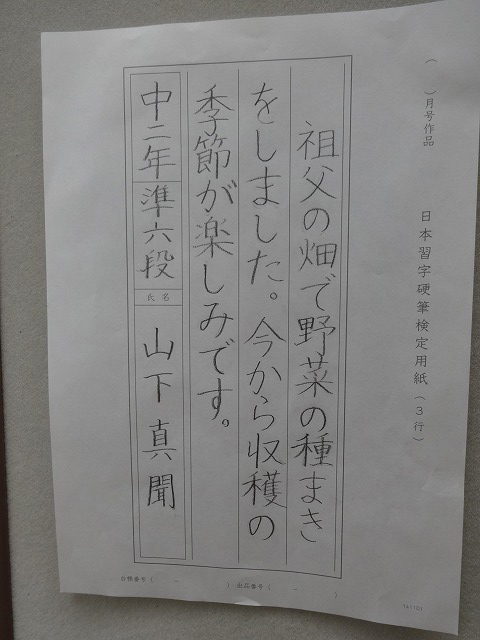 （　　）月号作品
日本習字硬筆検定用紙（３行）
祖父の畑で野菜の種まき
をしました。今から収穫の
季節が楽しみです。
中二年
準六段
氏名
山下真聞
会員番号（　　－　　）出品番号（　　－　　）